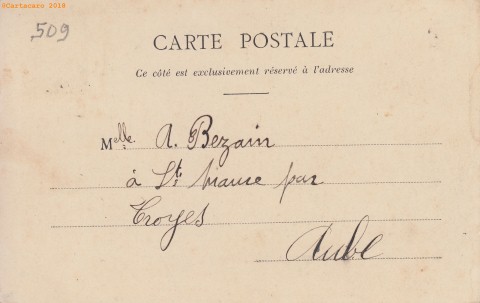 ©Cartacaro 2010
509
CARTE POSTALE
Ce côté est exclusivement réservé à l'adresse
Melle. A. Bezain
à St Maure par
Troyes
Aube